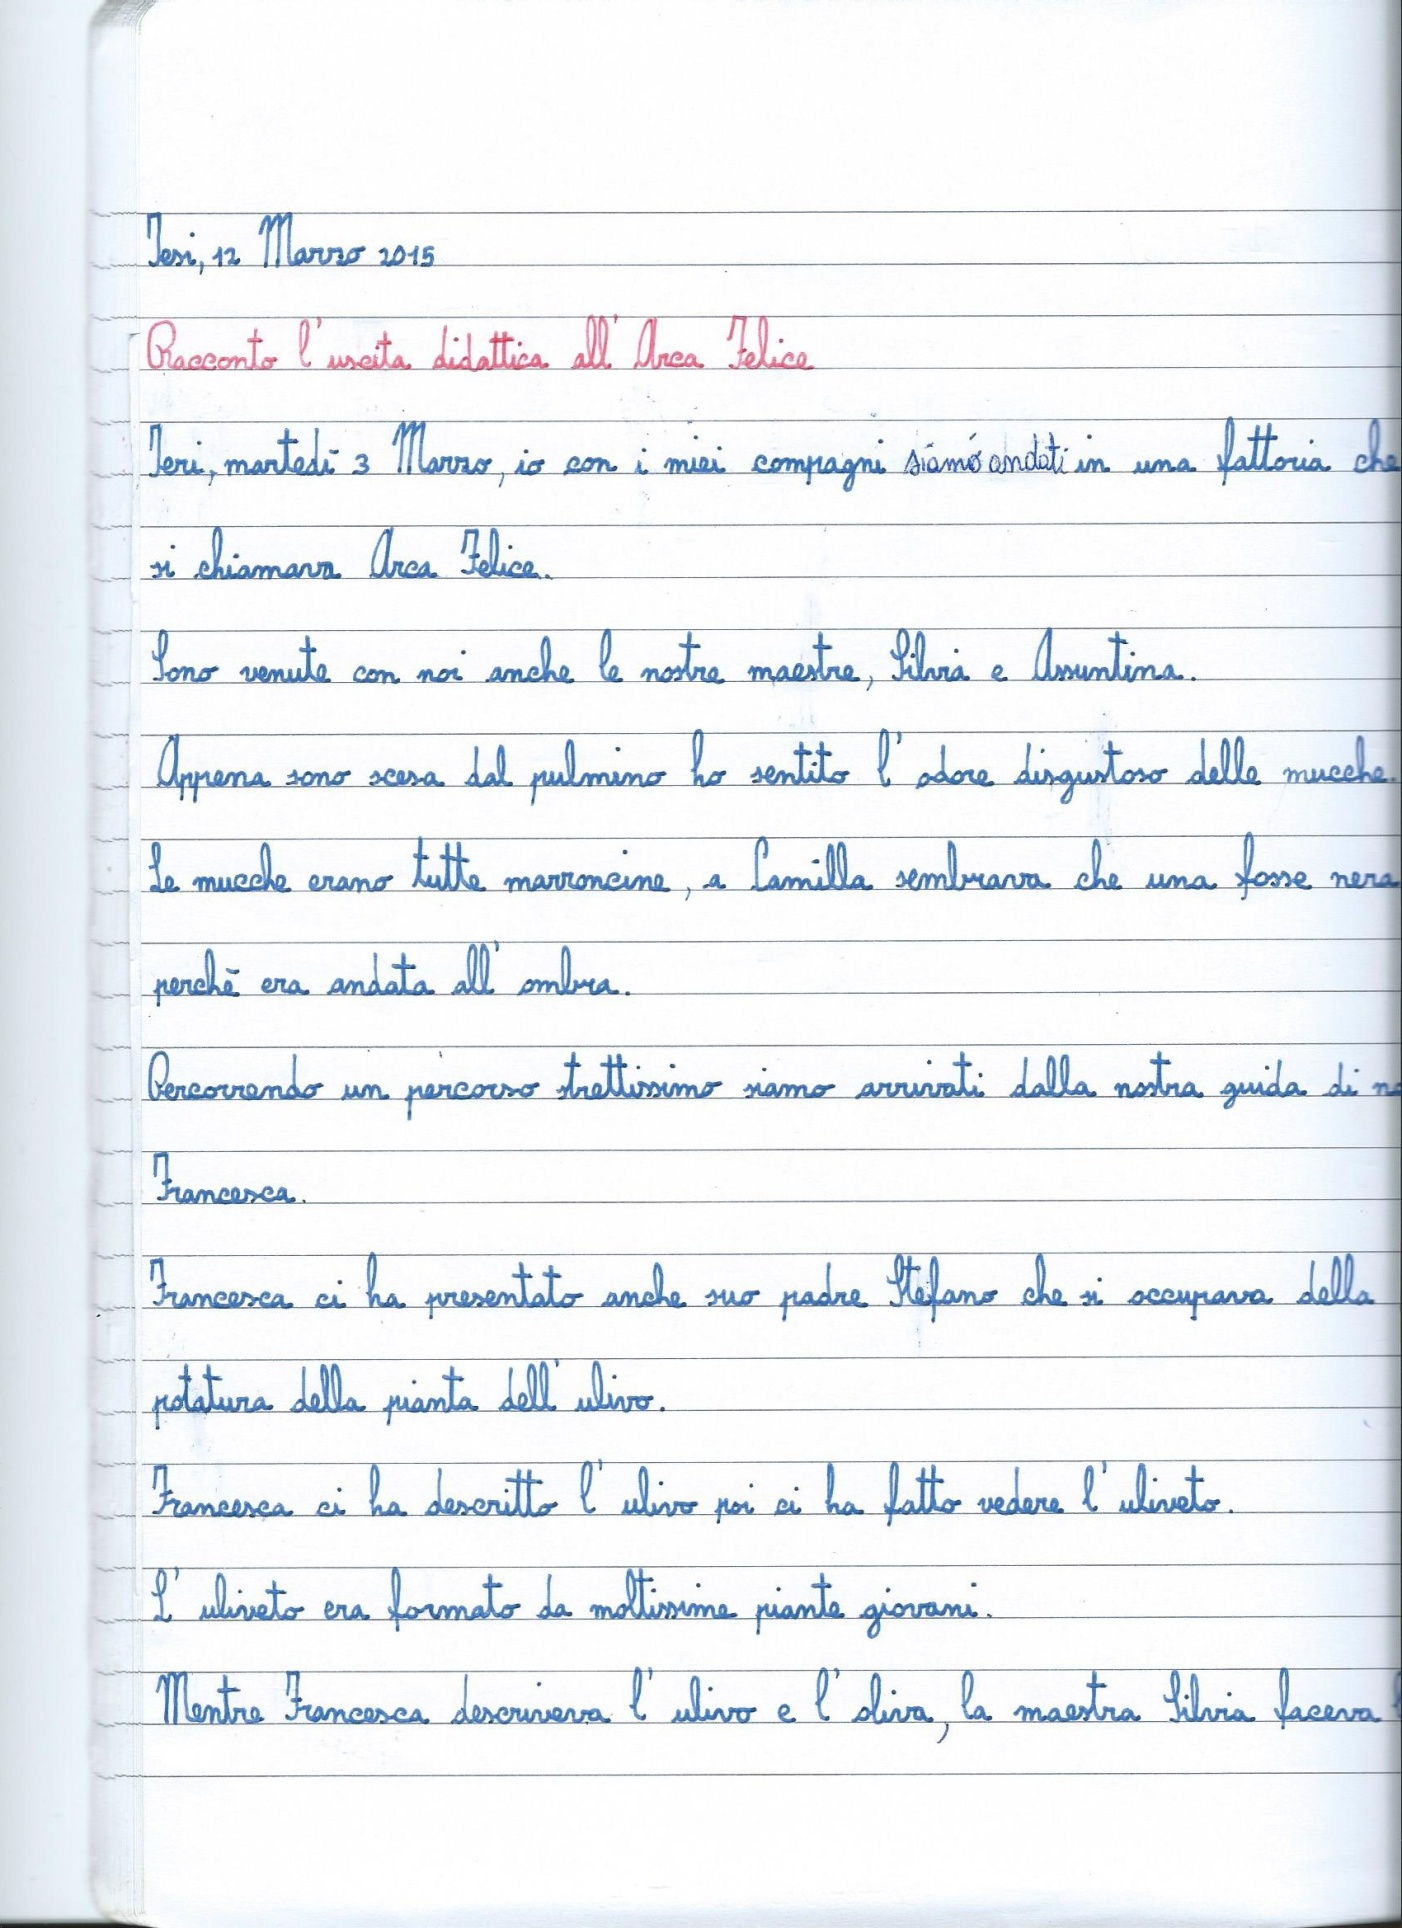 Jesi, 12 Marzo 2015
Racconto l'uscita didattica all'Arca Felice
Ieri, martedì 3 Marzo, io con i miei compagni siamo andati in una fattoria che
si chiamava Arca Felice.
Sono venute con noi anche le nostre maestre, Silvia e Assuntina.
Appena sono scesa dal pulmino ho sentito l'odore disgustoso delle mucche.
Le mucche erano tutte marroncine, a Camilla sembrava che una fosse nera
perchè era andata all'ombra.
Percorrendo un percorso strettissimo siamo arrivati dalla nostra guida di
Francesca.
Francesca ci ha presentato anche suo padre Stefano che si occupava della
potatura della pianta dell'ulivo.
Francesca ci ha descritto l'ulivo poi ci ha fatto vedere l'uliveto.
L'uliveto era formato da moltissime piante giovani.
Mentre Francesca descriveva l'ulivo e l'oliva, la maestra Silvia faceva